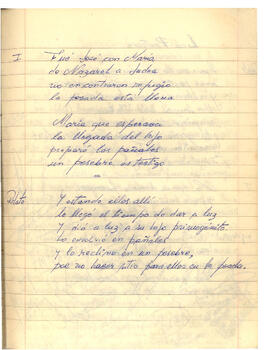 I Fué José con María
de Nazaret a Judea
no encontraron refugio
la posada está llena
María que esperaba
la llegada del hijo
preparó los pañales
un pesebre es testigo
Relato Y estando ellos allí
le llegó el tiempo de dar a luz
Y dió a luz a su hijo primogénito.
Lo envolvió en pañales
y lo reclinó en un pesebre,
por no haber sitio para ellos en la posada.